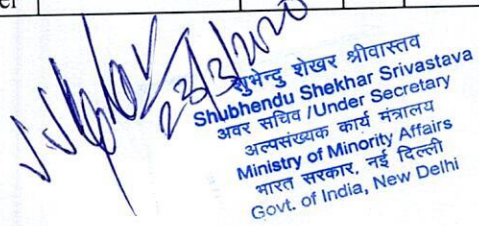 23/3/2020
शुभेन्दु शेखर श्रीवास्तव
Shubhendu Shekhar Srivastava
अवर सचिव /Under Secretary
अल्पसंख्यक कार्य मंत्रालय
Ministry of Minority Affairs
भारत सरकार, नई दिल्ली
Govt. of India, New Delhi